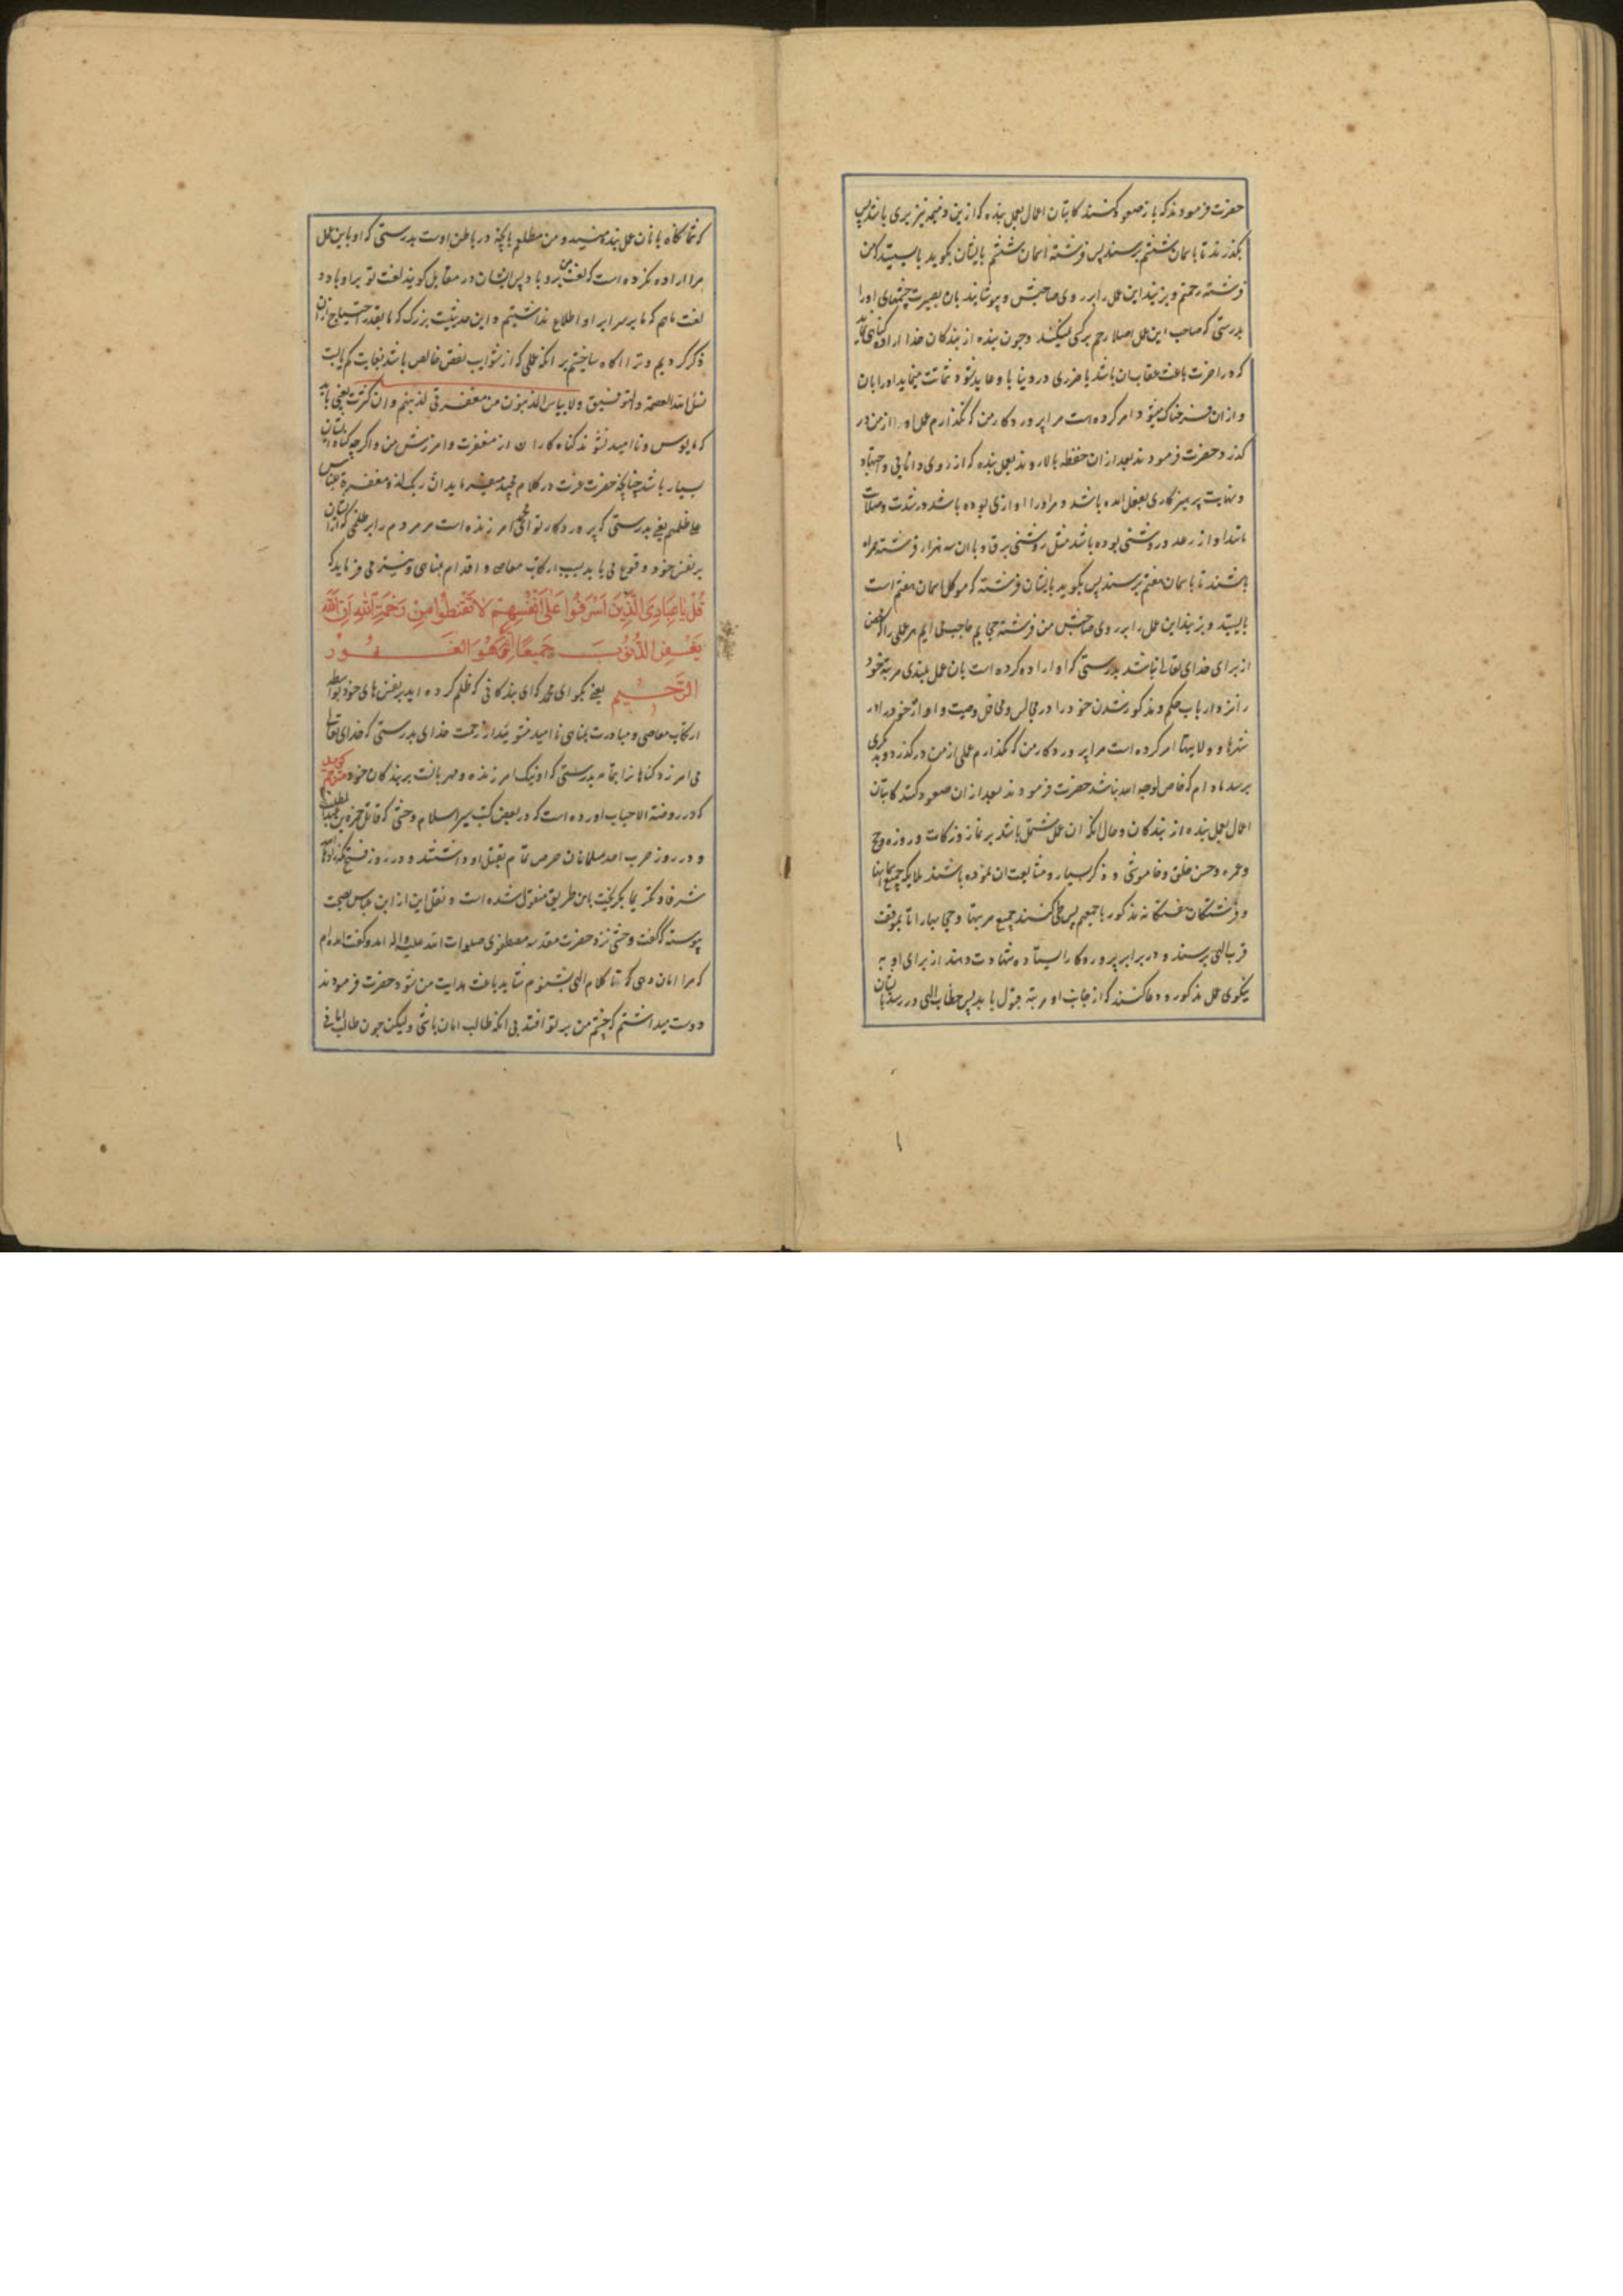 حضرت فرمودند که باز صعود کنند کاتبان اعمال بعمل بنده که ازین ذمیمه نیز بری باشد پس
بگذرند تا باسمان ششم برسند پس فرشته اسمان ششم بایشان بگوید بایستید که من
فرشته رحمتم و بزنید این عمل را بر روی صاحبش و بپوشانید بان بصیرت چشمهای اورا
بدرستی که صاحب این عمل اصلا رحم بر کسی نمیکند و چون بنده از بندکان خدا اراده کناهی کند
که در اخرت باعث عقاب ان باشد یا ضرری در دنیا باو عاید شود شماتت مینماید اورا بان
و ازان فرحناک میشود امر کرده است مرا پروردکار من که نگذارم عمل او را از من در
کذرد حضرت فرمودند بعد ازان حفظه بالا روند بعمل بنده که از روی دانائی و اجتهاد
و نهایت پرهیزکاری بفعل امده باشد و مر اورا اوازی بوده باشد در شدت و صلابت
مانند اواز رعد و روشنی بوده باشد مثل روشنی برق و با ان سه هزار فرشته همراه
باشند تا باسمان هفتم برسند پس بگوید بایشان فرشته که موکل اسمان هفتم است
بایستید و بزنید این عمل را بر روی صاحبش من فرشته حجابم حاجب می ایم هر عملی را که محض
از برای خدای تعالی نباشد بدرستی که او اراده کرده است بان عمل بلندی مرتبه خود
را نزد ارباب حکم و مذکور شدن خود را در مجالس و محافل وصیت و اوازه خود را در
شهرها و ولایتها امر کرده است مرا پروردکار من که نگذارم عملی از من در کذرد و بدیگری
برسد مادام که خاص لوجه الله نباشد حضرت فرمودند بعد ازان صعود کنند کاتبان
اعمال بعمل بنده از بندکان و حال انکه ان عمل مشتمل باشد بر نماز و زکات و روزه و حج
و عمره و حسن خلق و خاموشی و ذکر بسیار و متابعت ان نموده باشند ملایکه جمیع اسمانها
و فرشتکان هفتکانه مذکور باجمعهم پس طی کنند جمیع مرتبها و حجابها را تا بموقف
قرب الهی برسند و در برابر پروردکار ایستاده شهادت دهند از برای او به
نیکوی عمل مذکور و دعا کنند که از جانب او مرتبه قبول یابد پس خطاب الهی در رسد بایشان
که شما نگاه بانان عمل بنده منید و من مطلعم بانچه در باطن اوست بدرستی که او باین عمل
مرا اراده نکرده است که لعنت من برو باد پس ایشان در مقابل کویند لعنت تو بر او باد و
لعنت ما هم که ما بر سرایر او اطلاع نداشتیم و این حدیثیست بزرک که ما بقدر احتیاج ازان
ذکر کردیم و ترا اکاه ساختیم بر انکه عملی که از شوایب نقص خالص باشد بغایت کم یابست
نسئل الله العصمة و التوفیق ولا ییاس المذنبون من مغفرتی لذنبهم و ان کثرت یعنی باید
که مایوس و ناامید نشوند کناه کاران از مغفرت و امرزش من و اگرچه کناه ایشان
بسیار باشد چنانچه حضرت عزت در کلام مجید میفرماید ان ربک لذو مغفرة للناس
علی ظلمهم یعنی بدرستی که پروردکار تو ای محمد امرزنده است مر مردم را بر ظلمی که از ایشان
بر نفس خود وقوع می یابد بسبب ارتکاب معاصی و اقدام بمناهی و نیز می فرماید که
قُلْ یَا عِبَادِیَ الَّذِینَ اَسْرَفُوا عَلَی اَنْفُسِهِمْ لَا تَقْنَطُوا مِنْ رَحْمَةِ اللّٰهِ اِنَّ اللّٰهَ
یَغْفِرُ الذُّنُوبَ جَمِیعًا اِنَّهُ هُوَ الْغَفُورُ
الرَّحِیمُ یعنی بگو ای محمد که ای بندکانی که ظلم کرده اید بر نفس های خود بواسطه
ارتکاب معاصی و مبادرت بمناهی ناامید مشوید از رحمت خدای بدرستی که خدای تعالی
می امرزد کناهانرا بتمام بدرستی که اونیک امرزنده و مهربانست بر بندکان خود مترجم کوید
که در روضة الاحباب اورده است که در بعض کتب سیر اسلام وحشی که قاتل حمزه بن عبدالمطلب
و در روز حرب احد مسلمانان حرص تمام بقتل او داشتند و در روز فتح مکه زادها الله
شرفا و تکریما بگریخت باین طریق منقول شده است و نقل این از ابن عباس بصحت
پیوسته که گفت وحشی نزد حضرت مقدسه مصطفوی صلوات الله علیه و اله امد و کفت امده ام
که مرا امان دهی که تا کلام الهی بشنوم شاید باعث هدایت من شود حضرت فرمودند
دوست میداشتم که چشم من بر تو افتد بی انکه طالب امان باشی ولیکن چون طالب امانی